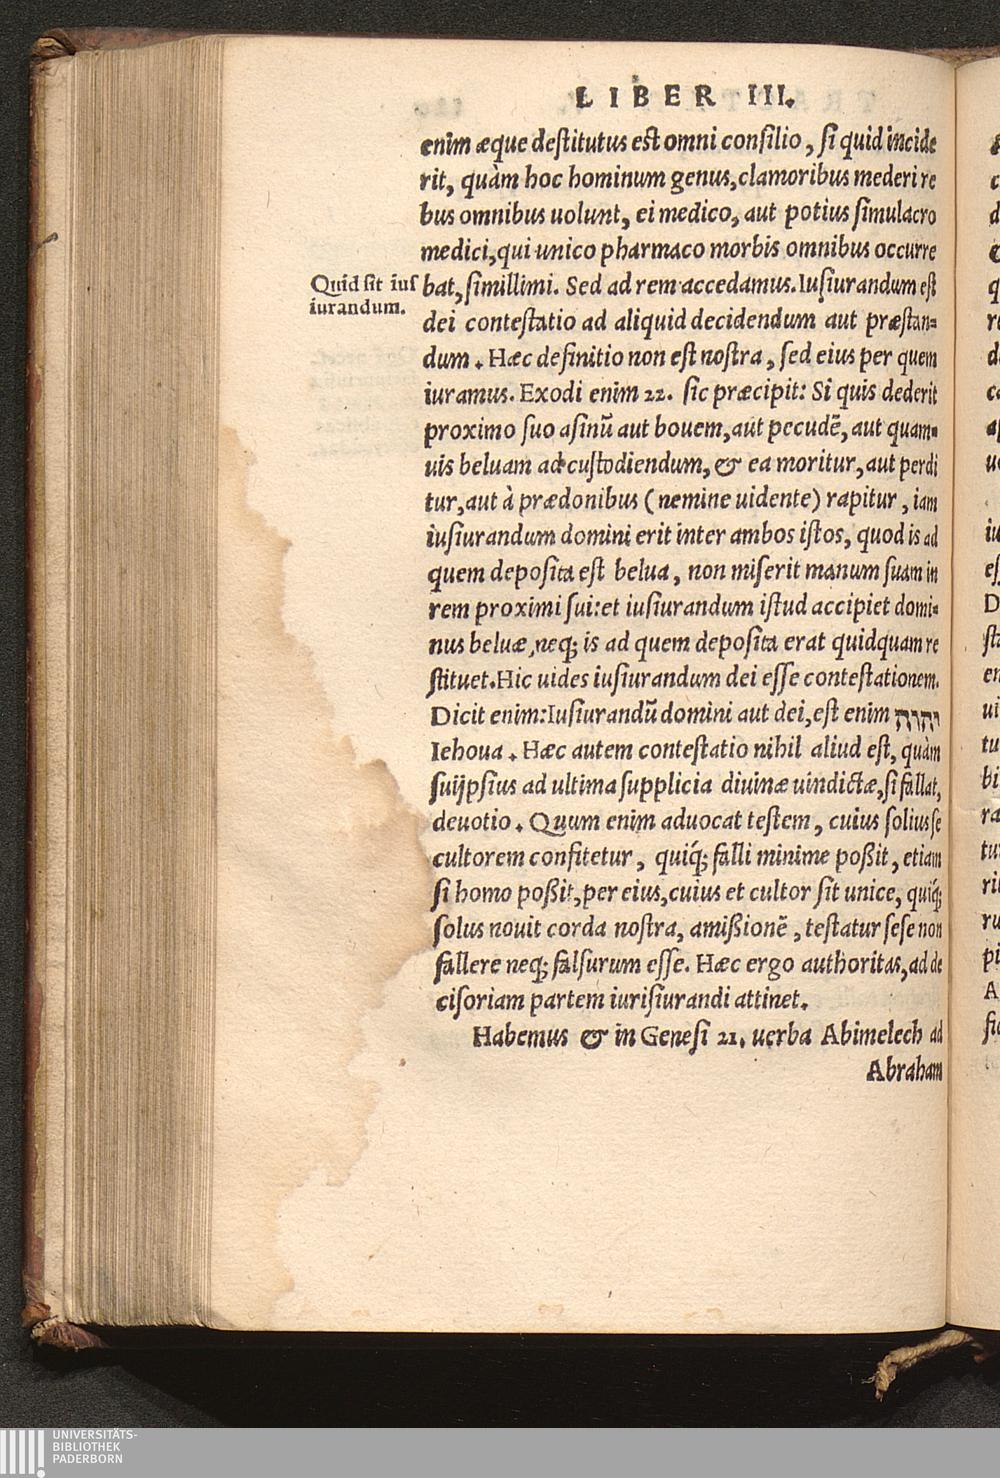 LIBER III.
enim æque destitutus est omni consilio, si quid incide
rit, quàm hoc hominum genus, clamoribus mederi re
bus omnibus uolunt, ei medico, aut potius simulacro
medici, qui unico pharmaco morbis omnibus occurre
Quid sit ius
iurandum.
bat, simillimi. Sed ad rem accedamus. Iusiurandum est
dei contestatio ad aliquid decidendum aut præstan=
dum. Hæc definitio non est nostra, sed eius per quem
iuramus. Exodi enim 22. sic præcipit: Si quis dederit
proximo suo asinū aut bouem, aut pecudē, aut quam=
uis beluam ad custodiendum, & ea moritur, aut perdi
tur, aut à prædonibus (nemine uidente) rapitur, iam
iusiurandum domini erit inter ambos istos, quod is ad
quem deposita est belua, non miserit manum suam in
rem proximi sui: et iusiurandum istud accipiet domi=
nus beluæ, neq; is ad quem deposita erat quidquam re
stituet. Hic uides iusiurandum dei esse contestationem.
Dicit enim: Iusiurandū domini aut dei, est enim יהוה
Iehoua. Hæc autem contestatio nihil aliud est, quàm
suijpsius ad ultima supplicia diuinæ uindictæ, si fallat,
deuotio. Quum enim aduocat testem, cuius solius se
cultorem confitetur, quiq́; falli minime poßit, etiam
si homo poßit, per eius, cuius et cultor sit unice, quiq́;
solus nouit corda nostra, amißionē, testatur sese non
fallere neq; falsurum esse. Hæc ergo authoritas, ad de
cisoriam partem iurisiurandi attinet.
Habemus & in Genesi 21. uerba Abimelech ad
Abraham
UNIVERSITÄTS-
BIBLIOTHEK
PADERBORN